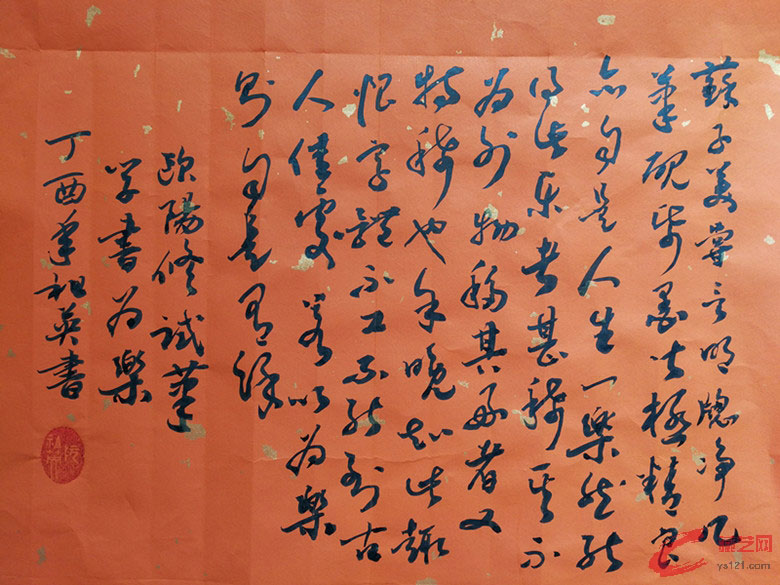 蘇子美嘗言明窓净几
筆硯紙墨皆極精良
亦自是人生一樂然能
得此樂者甚稀其不
為外物移其好者又
特稀也余晚知此趣
恨字體不工不能到古
人佳處若以為樂
則自是有餘
歐陽修試筆
学書為樂
丁酉年祖英書
艺网
ys121.com